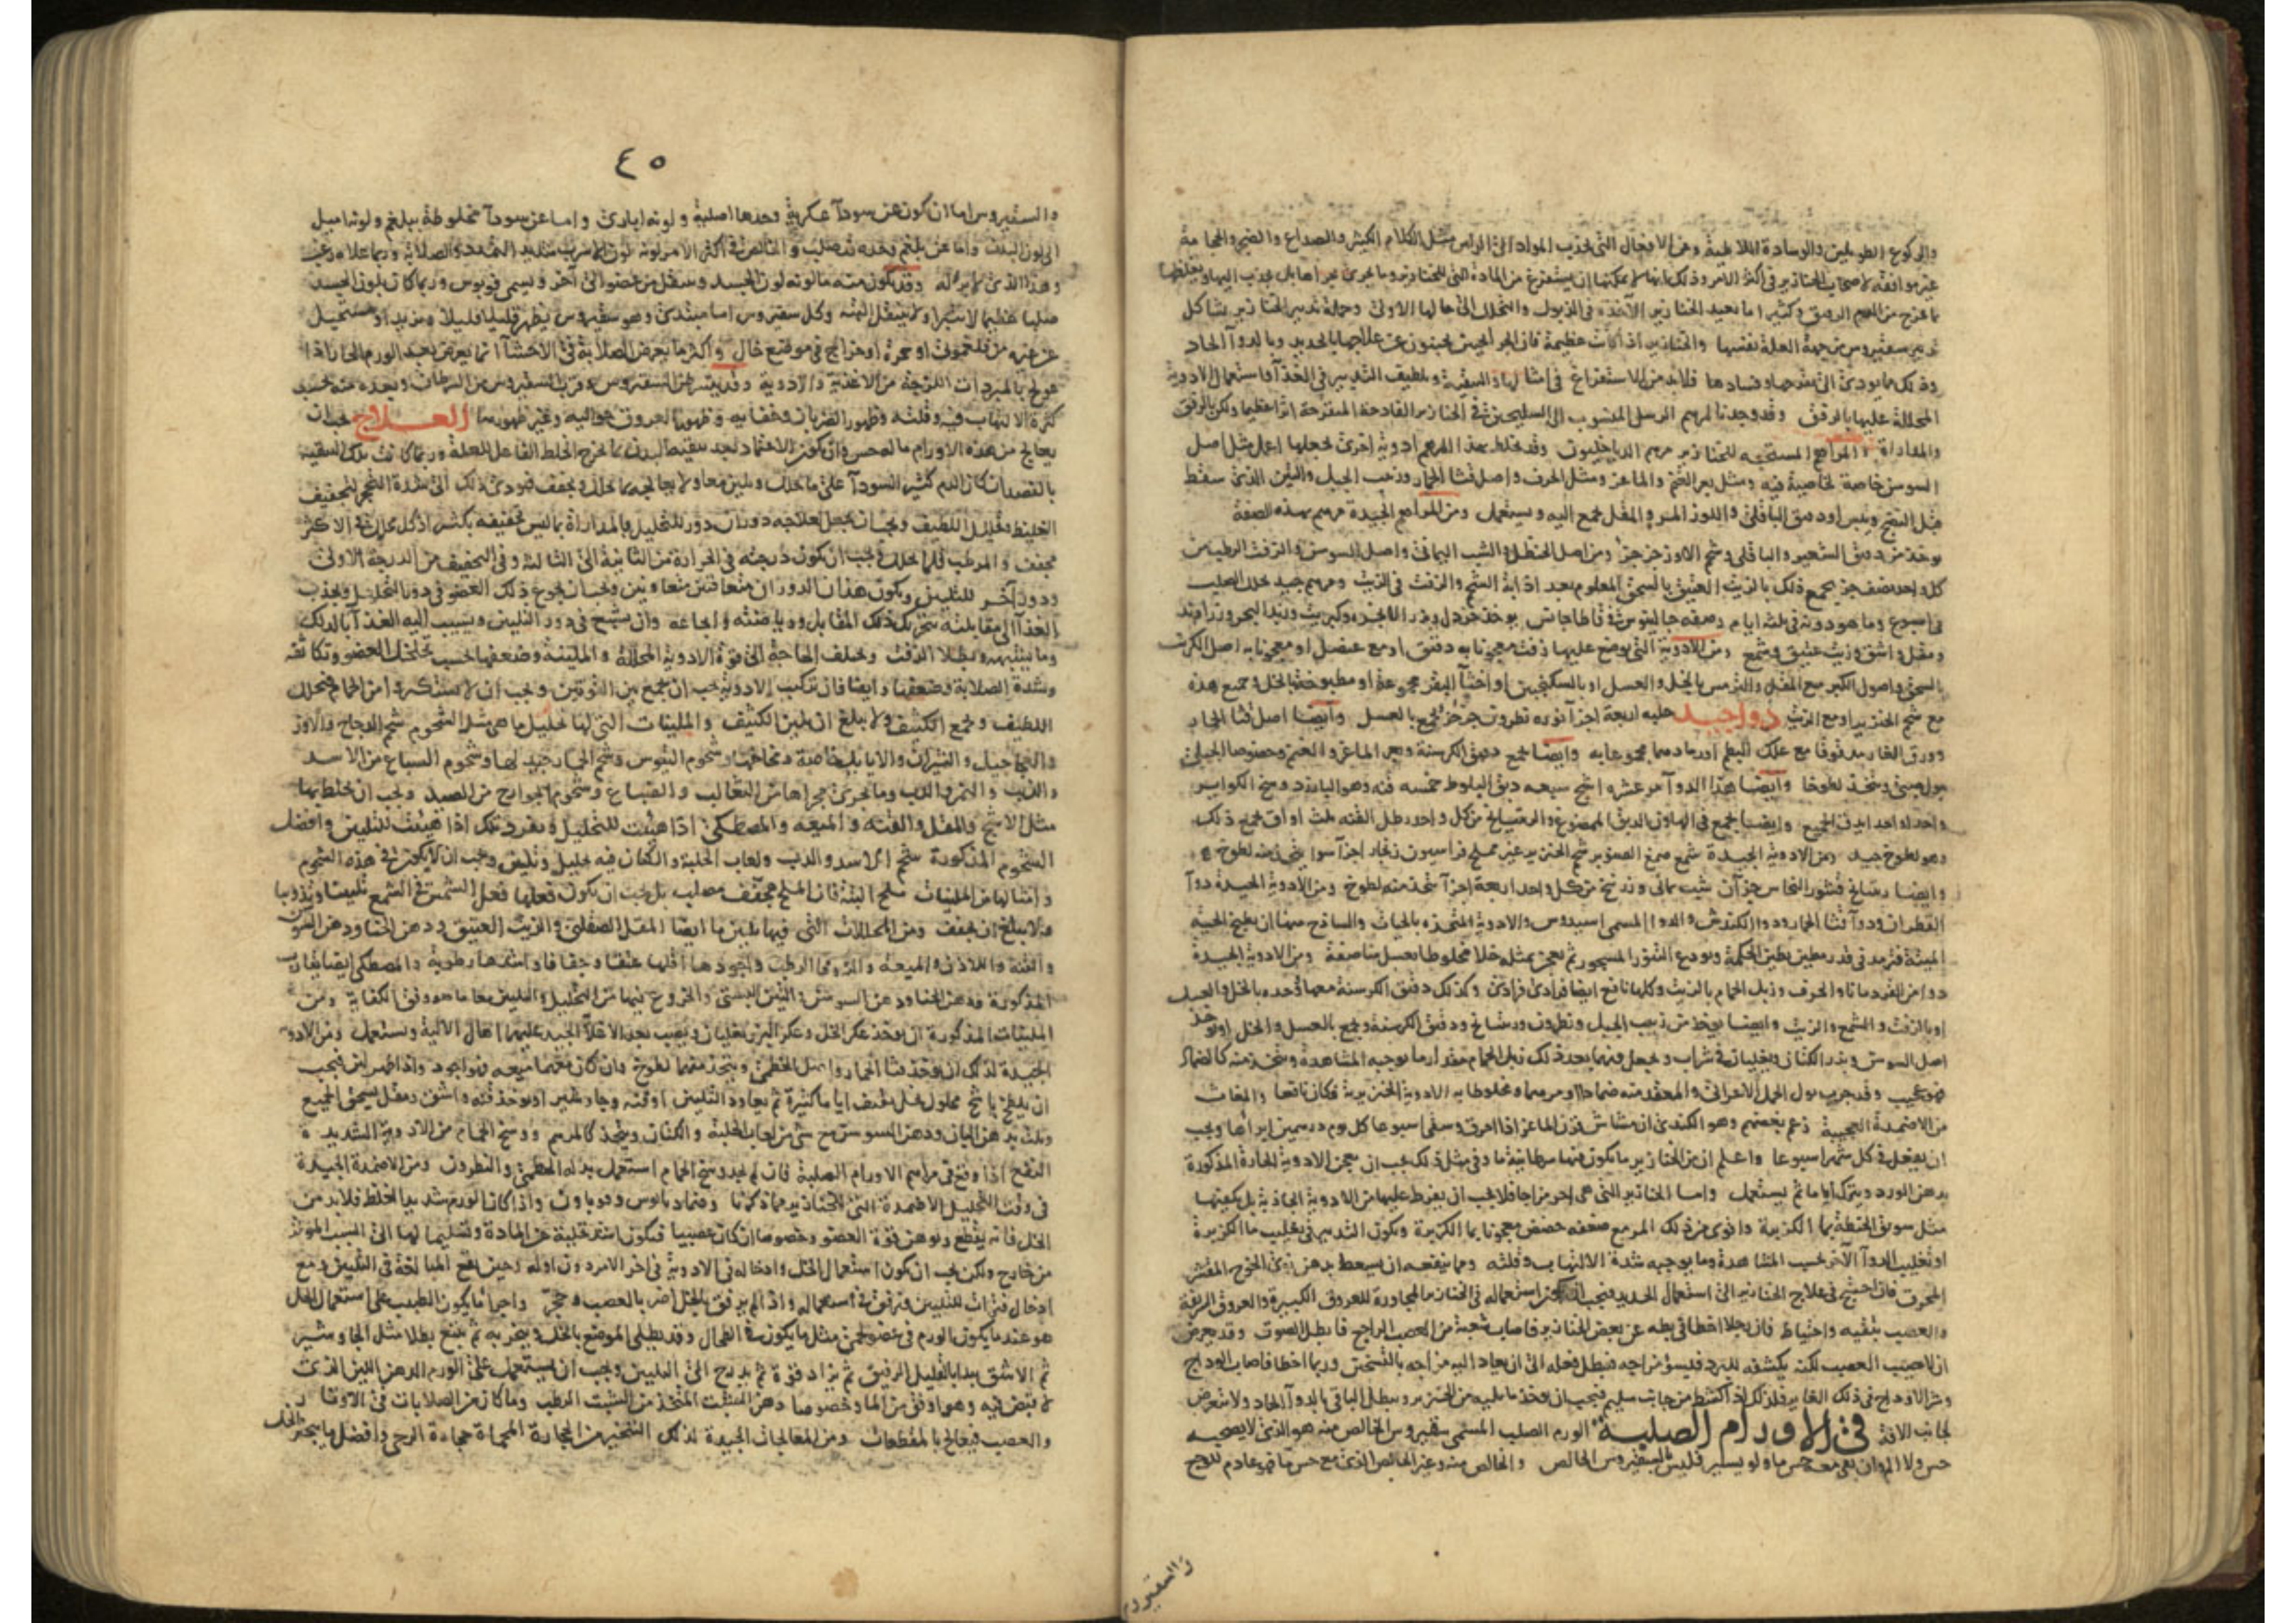 والركوع الطويلين والوسادة اللاطية ومن الافعال التي تجذب المواد الى الراس مثل الكلام الكثير والصداع والضجر والحجامة
غير موافقة لاصحاب الخنازير في اكثر الامر وذلك لانها لا يمكنها ان يستفرغ من المادة التي للخنازير وما يجري مجراها بل تجذب اليها وتغلظها
بما تخرج من الدم الرقيق وكثيرا ما تعيد الخنازير الآخذة في الذبول والتحلل الى حالها الاولى وجملة تدبير الخنازير يشاكل
تدبير سقيروس من جهة العلة نفسها والخنازير اذا كانت عظيمة فان الجراحيين يجتنبون عن علاجها بالحديد وبالدوآ الحاد
وذلك مما يودي الى تقرحها وفسادها فلابد من الاستفراغ في امثالها والتنقية وتلطيف التدبير في الغذآ واستعمال الادوية
المحللة عليها بالرفق وقد وجدنا لمرهم الرسل المنسوب الى السليحيين في الخنازير القادحة المتقرحة اثرا عظيما ولكن بالرفق
والمداراة المراهم المستحبة للخنازير مرهم الدياخيلون وقد يخلط بهذا المرهم ادوية اخرى تجعلها اعمل مثل اصل
السوسن خاصة لخاصية فيه ومثل بعر الغنم والماعز ومثل الحرف واصل قثا الحمار وزبيب الجبل والتين الذي سقط
قبل النضج ويبس او دقيق الباقلى واللوز المر والمقل يجمع اليه ويستعمل ومن المراهم الجيدة مرهم بهذه الصفة
يوخذ من دقيق الشعير والباقلى وشحم الاوز جزء جزء ومن اصل الحنظل والشب اليماني واصل السوس والزفت الرطب من
كل واحد نصف جزء يجمع ذلك بالزيت العتيق بالسحق المعلوم بعد اذابة الشحم والزفت في الزيت ومرهم جيد يحلل الصلب
في اسبوع وما هو دونه في ثلثة ايام وصفه جالينوس في قاطاجانس يوخذ خردل وبذر الانجرة وكبريت وزبد البحر وزراوند
ومقل واشق وزيت عتيق وشمع ومن الادوية التي توضع عليها زفت معجونا به دقيق او مع عنصل او معجونا به اصل الكرنب
بالسحق واصول الكبر مع المقل والترمس بالخل والعسل او بالسكنجبين او اخثآ البقر مجموعة او مطبوخة بالخل وجميع هذه
مع شحم الخنزير او مع الزيت دوآ جيد حلبه اربعة اجزآ نوره نطرون جزء جزء يجمع بالعسل وايضا اصل قثا الحمار
وورق الغار مدقوقا مع علك البطم او رمادهما مجموعا به وايضا يجمع دقيق الكرسنة وبعر الماعز والغنم وخصوصا الجبلي
ببول صبي ويتخذ لطوخا وايضا هذا الدوآ مر عشره اشج سبعه دبق البلوط خمسه قنه وهو البارزد وسخ الكواير
واحد واحد يدق الجميع وايضا يجمع في الهاون الدبق الممضوغ والرتيانج من كل واحد رطل القنه ثلث اواق يجمع ذلك
وهو لطوخ جيد ومن الادوية الجيدة شمع صمغ الصنوبر شحم الخنزير غير مملح فراسيون زنجار اجزآ سوا يتخذ منه لطوخ
وايضا رتيانج قشور النحاس جزآن شب يماني وزرنيخ من كل واحد اربعة اجزآ يتخذ منه لطوخ ومن الادوية الجيدة دوآ
القطران ودوآ قثا الحمار ودوا الكندش والدوا المسمى اسيدوس والادوية المتخذه بالحيات والساذج منها ان يطبخ الحية
الميتة فترمد في قدر مطين بطين الحكمة ويودع التنور المسجور ثم يعجن بمثله خلا مخلوطا بعسل مناصفة ومن الادوية الجيدة
دوا من القردمانا والحرف وزبل الحمام بالزيت وكلها نافع ايضا فرادى فرادى وكذلك دقيق الكرسنة معها وحده بالخل والعسل
او بالزفت والشمع والزيت وايضا يوخذ من زبيب الجبل ونطرون ورتيانج ودقيق الكرسنة ويجمع بالعسل والخل او يوخذ
اصل السوس وبذر الكتان ويغليان في شراب ويجعل فيهما بعد ذلك زبل الحمام مقدار ما يوجبه المشاهدة ويتخذ منه كالضماد
فهو عجيب وقد جرب بول الجمل الاعرابي والمعقد منه ضمادا او مرهما ومخلوطا به الادوية الخنزيرية فكان نافعا والمغاث
من الاضمدة العجيبة زعم بعضهم وهو الكندي ان مشاش قرن الماعز اذا احرق وسقي اسبوعا كل يوم درهمين ابراها ويجب
ان يفعل في كل شهر اسبوعا واعلم ان من الخنازير ما يكون فيها سرطانية ما وفي مثل ذلك يجب ان يعجن الادوية الحادة المذكورة
بدهن الورد ويترك اياما ثم يستعمل واما الخنازير التي هي احر مزاجا فلا يجب ان يفرط عليها من الادوية الجاذبة بل يكفيها
مثل سويق الحنطة بما الكزبرة واقوى من ذلك المر مع ضعفه حضض معجونا بما الكزبرة ويكون التدبير في تغليب ما الكزبرة
او تغليب الدوآ الآخر بحسب المشاهدة وما يوجبه شدة الالتهاب وقلته ومما ينفعه ان يسعط بدهن نوى الخوخ المقشر
المحرق فان احتيج في علاج الخنازير الى استعمال الحديد فيجب ان يتحرز استعماله في الخنازير المجاورة للعروق الكبيرة والعروق الشريفة
والعصب بتقيه واحتياط فان رجلا اخطا في بطه عن بعض الخنازير فاصاب شعبة من العصب الراجع فابطل الصوت وقد يعرض
ان لا يصيب العصب لكنه يكشفه للبرد فيسوء مزاجه فيبطل فعله الى ان يعاد اليه مزاجه بالتسخين وربما اخطا فاصاب الوداج
وشر الاوداج في ذلك الغاير فلذلك اذا كشط من جانب سليم فيجب ان يوخذ ما يليه من الخنزير ويبطل الباقي بالدوآ الحاد ولا يتعرض
لجانب الآفة في الاورام الصلبة الورم الصلب المسمى سقيروس الخالص منه هو الذي لا يصحبه
حس ولا الم وان بقي معه حس ما ولو يسير فليس بالسقيروس الخالص والخالص منه وغير الخالص الذي مع حس ما فهو عادم للوجع
والسقيروس
٤٥
والسقيروس اما ان يكون عن سودآ عكرية وحدها اصلية ولونه اباري واما عن سودآ مخلوطة ببلغم ولونه اميل
الى لون البدن واما عن بلغم وحده قد صلب والخالص في اكثر الامر لونه لون الاسرب شديد التمدد والصلابة وربما علاه زغب
وهذا الذي لا برء له وقد يكون منه ما لونه لون الجسد وينتقل من عضو الى آخر ويسمى قونوس وربما كان بلون الجسد
صلبا عظيما لا يبرا ولا ينتقل البته وكل سقيروس اما مبتدئ وهو سقيروس يظهر قليلا قليلا ويزيد او مستحيل
عن غيره من فلغموني او حمرة او خراج في موضع خال واكثر ما يعرض الصلابة في الاحشآ انما يعرض بعد الورم الحار اذا
عولج بالمبردات اللزجة من الاغذية والادوية وقد يتسرطن السقيروس ويقرب السقيروس من السرطان ويبعده منه بحسب
كثرة الالتهاب فيه وقلته وظهور الضربان وخفايه وظهور العروق حواليه وغير ظهورها العلاج يجب ان
يعالج من هذه الاورام ما له حس وان يكون الاعتماد بعد تنقية البدن بما يخرج الخلط الفاعل للعلة وربما كانت تلك التنقية
بالفصد ان كان الدم كثير السودآ على ما يحلل ويلين معا ولا يعالج بما يحلل ويجفف فيودي ذلك الى شدة التحجر لتجفيف
الغليظ وتحليل اللطيف ويجب ان يجعل لعلاجه دوران دور للتحليل بالمداراة بما ليس تجفيفه بكثير اذ كل محلل في الاكثر
مجفف والمرطب قلما يحلل فيجب ان يكون درجته في الحرارة من الثانية الى الثالثة وفي التجفيف من الدرجة الاولى
ودور آخر للتليين ويكون هذان الدوران متعاقبين متعاونين ويجب ان يجوع ذلك العضو في دور التحليل ويجذب
الغذآ الى مقابلته بتحريك ذلك المقابل ورياضته واجاعه وان يشبع في دور التليين ويسبب اليه الغذآ بالدلك
وما يشبهه وبطلا الزفت ويختلف الحاجة الى قوة الادوية المحللة والملينة وضعفها بحسب تخلخل العضو وتكاثفه
وشدة الصلابة وضعفها وايضا فان تركيب الادوية يجب ان يجمع بين القوتين ويجب ان لا يستكثر من الحمام فيحلل
اللطيف ويجمع الكثيف ولا يبلغ ان يلين الكثيف والملينات التي لها تحليل ما هي مثل الشحوم شحم الدجاج والاوز
والعجاجيل والثيران والايايل خاصة ومخاخها وشحوم التيوس وشحم الحمار جيد لها وشحوم السباع من الاسد
والذيب والنمر والدب وما يجري مجراها من الثعالب والضباع وشحوم الجوارح من الصيد ويجب ان يخلط بها
مثل الاشج والمقل والقنه والميعه والمصطكى اذا هيئت للتحليل ويفرد تلك اذا هيئت للتليين وافضل
الشحوم المذكورة شحم الاسد والدب ولعاب الحلبة والكتان فيه تحليل وتليين ويجب ان لا يكون في هذه الشحوم
وامثالها من الملينات ملح البته فان الملح مجفف مصلب بل يجب ان يكون فعلها فعل الشمس في الشمع تليينا وتذويبا
ولا يبلغ ان يجفف ومن المحللات التي فيها تليين ما ايضا المقل الصقلبي والزيت العتيق ودهن الحنا ودهن السوسن
والقنه واللاذن والميعه والزوفى الرطب واجودها اقلها عتقا وجفافا واشدها رطوبة والمصطكى ايضا يقارب
المذكورة ودهن الحنا ودهن السوسن والتين البستي والخروع فيها من التحليل والتليين معا ما هو وفق الكفاية ومن
الملينات المذكورة ان يوخذ عكر الخل وعكر البزر يغليان ويصب بعد الاغلآ الجيد عليهما اهال الالية ويستعمل ومن الادوية
الجيدة لذلك ان يوخذ قثا الحمار واصل الخطمي ويتخذ منهما لطوخ وان كان معهما ميعه فهو اجود واذا ظهر لين فيجب
ان يلطخ باشج محلول بخل ثقيف اياما كثيرة ثم يعاود التليين او قنه وجاوشير او يوخذ قنه واشق ومقل يسحق الجميع
ويلت بدهن البان ودهن السوسن مع شي من لعاب الحلبه والكتان ويتخذ كالمرهم ووسخ الحمام من الادوية الشديدة
النفع اذا وقع في مراهم الاورام الصلبة فان لم يجد وسخ الحمام استعمل بدله الخطمي والنطرون ومن الاضمدة الجيدة
في وقت التحليل الاضمدة التي للخنازير مما ذكرنا وضماد باسوس وقوباون واذا كان الورم شديد الغلظ فلابد من
الخل فانه يقطع ويوهن قوة العضو وخصوصا ان كان عصبيا فيكون اشد تخلية عن المادة وتسليما لها الى السبب الموثر
من خارج ولكن يجب ان يكون استعمال الخل وادخاله في الادوية في آخر الامر دون اوله وحين يقع المبالغة في التليين ومع
ادخال فترات للتليين وترفق في استعماله واذا لم يرفق بالخل اضر بالعصب وحجر واجرا ما يكون الطبيب على استعمال الخل
هو عند ما يكون الورم في عضو لحمي مثل ما يكون في الطحال وقد يطلى الموضع بالخل ويبخر به ثم يتبع بطلا مثل الجاوشير
ثم الاشق يبدا بالقليل الرقيق ثم يزاد قوة ثم يدرج الى التليين ويجب ان يستعمل على الورم الدهن اللين الذي
لا قبض فيه وهو اوفق من الما وخصوصا دهن الشبث المتخذ من الشبت الرطب وما كان من الصلابات في الاوتار
والعصب فيعالج بالمقطعات ومن المعالجات الجيدة لذلك التبخير من الحجارة المحماة حجارة الرحى وافضل ما يبخر الخل